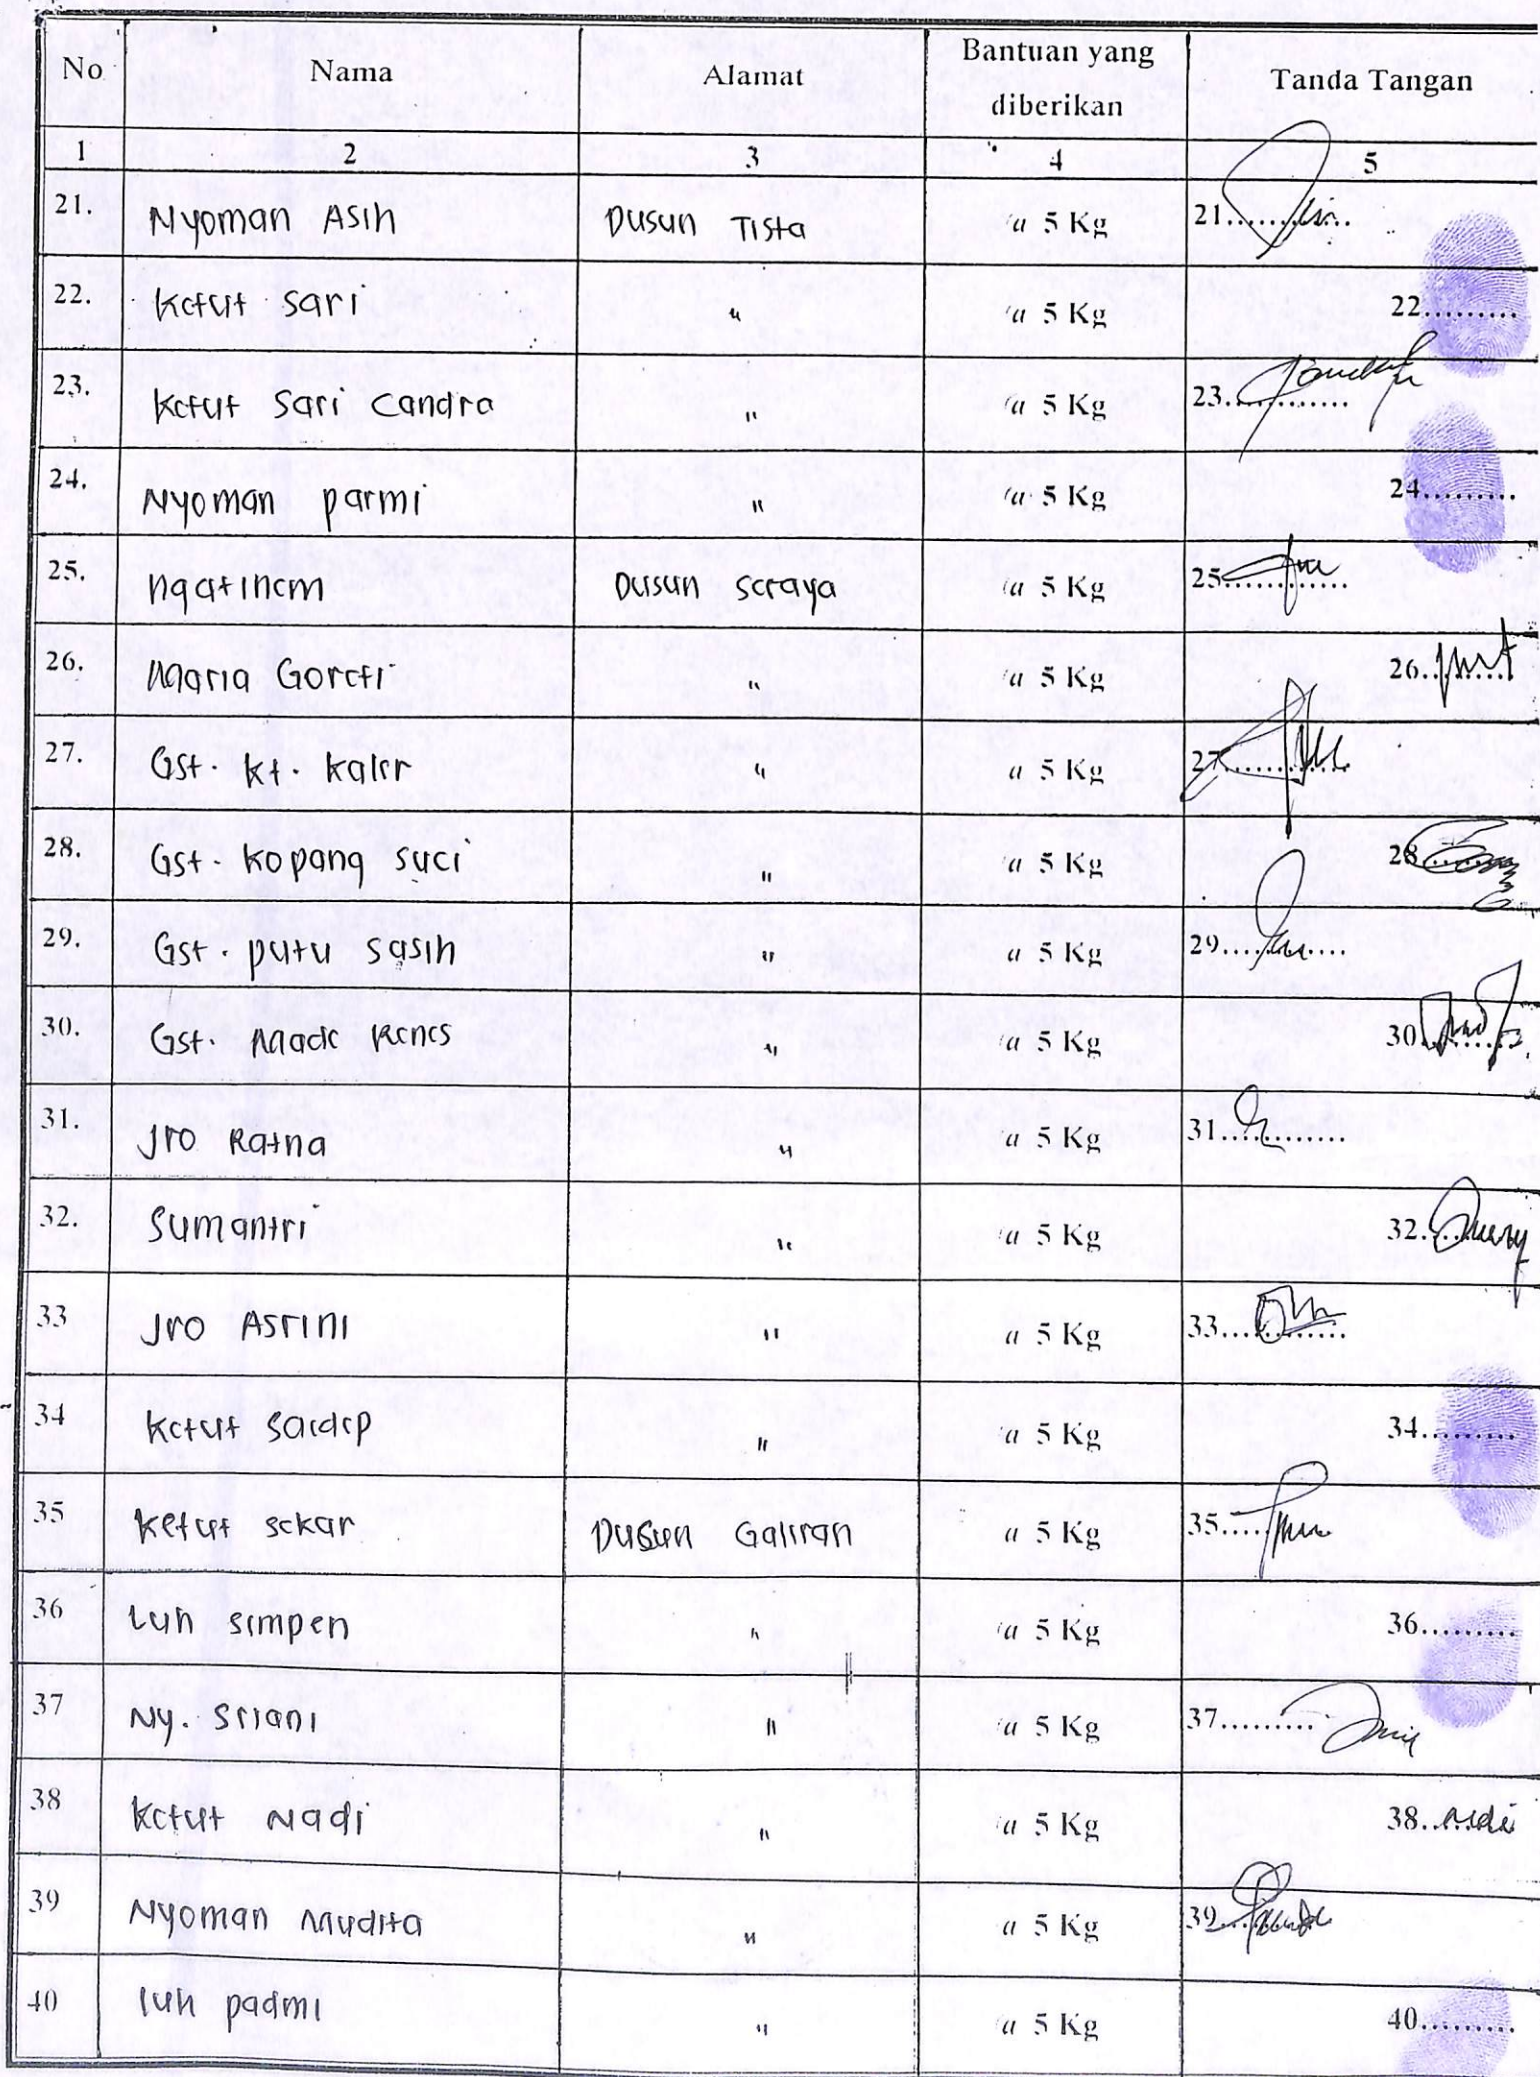 No Nama Alamat Bantuan yang diberikan Tanda Tangan
1 2 3 4 5
21. Nyoman Asih Dusun Tista a 5 Kg 21..........
22. Ketut sari " a 5 Kg 22..........
23. Ketut Sari Candra " a 5 Kg 23..........
24. Nyoman parmi " a 5 Kg 24..........
25. ngatinem Dusun Seraya a 5 Kg 25..........
26. Maria Goreti " a 5 Kg 26..........
27. Gst. kt. kaler " a 5 Kg 27..........
28. Gst. Kopang suci " a 5 Kg 28..........
29. Gst. putu sasih " a 5 Kg 29..........
30. Gst. Made Renes " a 5 Kg 30..........
31. Jro Ratna " a 5 Kg 31..........
32. Sumantri " a 5 Kg 32..........
33 Jro Asrini " a 5 Kg 33..........
34 Ketut " a 5 Kg 34..........
35 Ketut sekar Dusun Galiran a 5 Kg 35..........
36 Luh simpen " a 5 Kg 36..........
37 Ny. Sriani " a 5 Kg 37..........
38 Ketut Nadi " a 5 Kg 38..........
39 Nyoman Mudita " a 5 Kg 39..........
40 luh padmi " a 5 Kg 40..........